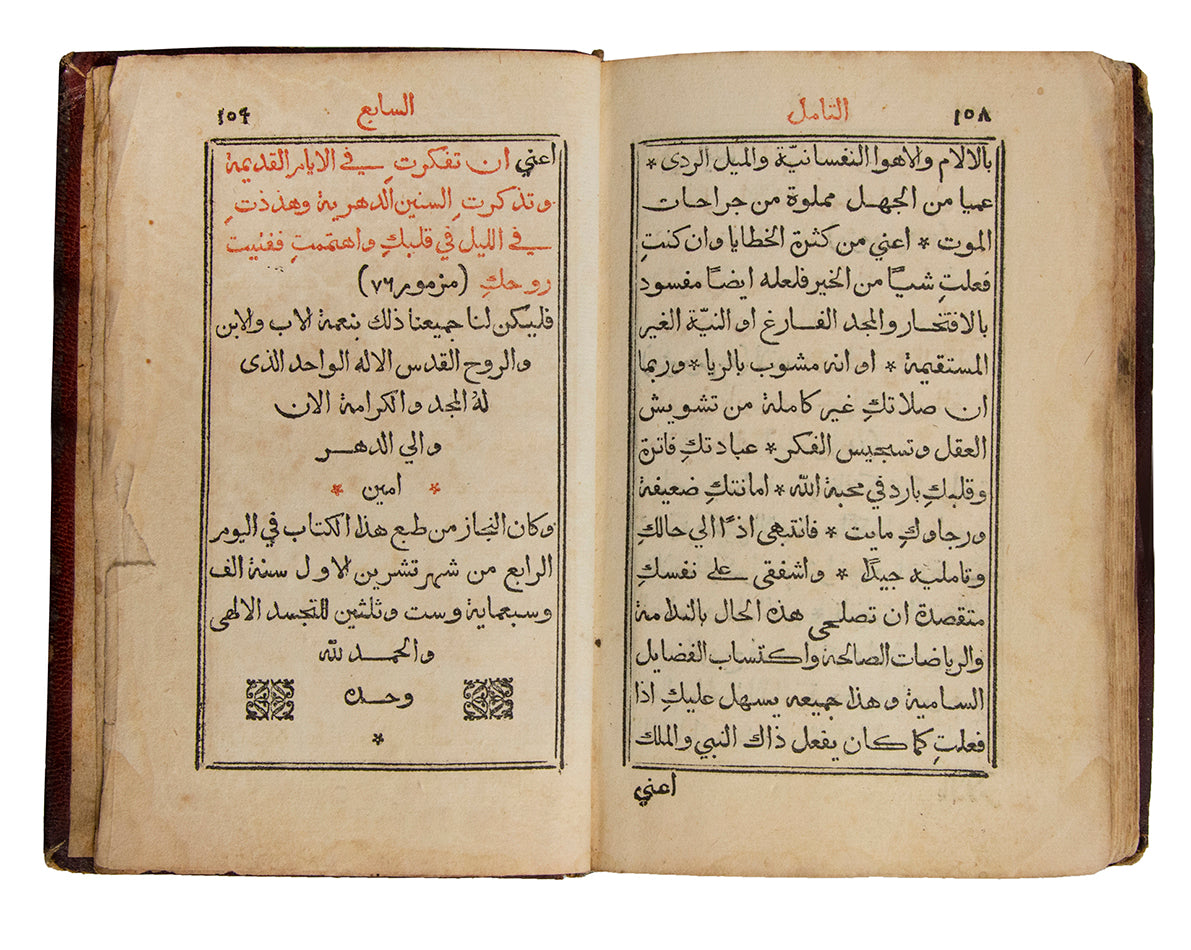 ١٥٨ التامل
بالالام والاهوا النفسانيّة والميل الردى *
عميا من الجهل مملوة من جراحات
الموت * اعني من كثرة الخطايا وان كنتِ
فعلتِ شيًا من الخير فلعله ايضًا مفسود
بالافتخار والمجد الفارغ او النيّة الغير
المستقيمة * او انه مشوب بالريا * وربما
ان صلاتكِ غير كاملة من تشويش
العقل وتسجيس الفكر * عبادتكِ فاترة
وقلبكِ بارد في محبة الله * امانتكِ ضعيفة
ورجاوكِ مايت * فانتبهى اذًا الي حالكِ
وتامليه جيدًا * واشفقى على نفسكِ
متقصدة ان تصلحى هذه الحال بالندامة
والرياضات الصالحة واكتساب الفضايل
السامية وهذا جميعه يسهل عليكِ اذا
فعلتِ كما كان يفعل ذاك النبي والملك
اعني
السابع ١٥٩
اعني ان تفكرتِ في الايام القديمة
وتذكرتِ السنين الدهرية وهذذتِ
في الليل في قلبكِ واهتممتِ ففتيت
روحكِ (مزمور ٧٦)
فليكن لنا جميعنا ذلك بنعمة الاب والابن
والروح القدس الاله الواحد الذى
لهُ المجد والكرامة الان
والي الدهر
* امين *
وكان النجاز من طبع هذا الكتاب في اليوم
الرابع من شهر تشرين الاول سنة الف
وسبعماية وست وثلثين للتجسد الالهى
والحمد لله
وحده
*